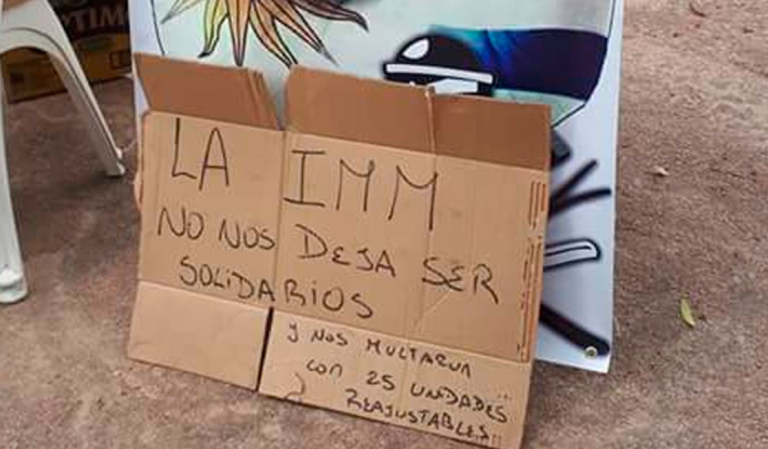 LA IMM
NO NOS DEJA SER
SOLIDARIOS
y NOS MULTARON
CON 25 UNIDADES
REAJUSTABLES!!